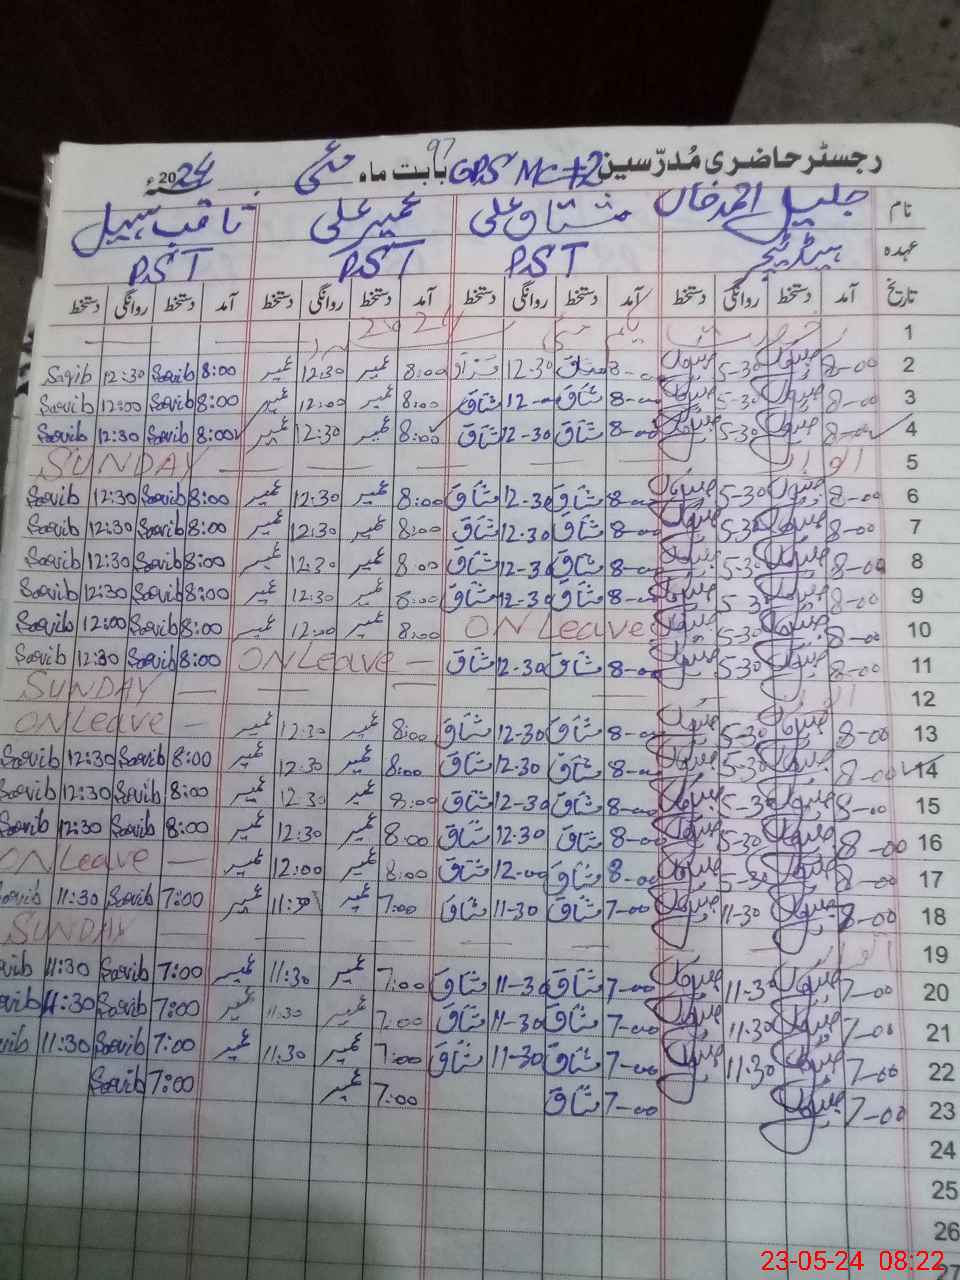 رجسٹر حاضری مُدرّسین GPS MC #2 بابت ماہ مئی 2024ء
97
نام جلیل احمد خاں مشتاق علی عمیر علی ثاقب سہیل
عہدہ ہیڈ ٹیچر PST PST PST
تاریخ آمد دستخط روانگی دستخط آمد دستخط روانگی دستخط آمد دستخط روانگی دستخط آمد دستخط روانگی دستخط
1
2 8-00 5-30 8-00 مشتاق 12-30 8:00 عمیر 12:30 عمیر 8:00 Saqib 12:30 Saqib
3 8-00 5-30 8-00 مشتاق 12-00 مشتاق 8:00 عمیر 12:00 عمیر 8:00 Saqib 12:00 Saqib
4 8-00 5-30 8-00 مشتاق 12-30 مشتاق 8:00 عمیر 12:30 عمیر 8:00 Saqib 12:30 Saqib
5 اتوار SUNDAY
6 8-00 5-30 8-00 مشتاق 12-30 مشتاق 8:00 عمیر 12:30 عمیر 8:00 Saqib 12:30 Saqib
7 8-00 5-30 8-00 مشتاق 12-30 مشتاق 8:00 عمیر 12:30 عمیر 8:00 Saqib 12:30 Saqib
8 8-00 5-30 8-00 مشتاق 12-30 مشتاق 8:00 عمیر 12:30 عمیر 8:00 Saqib 12:30 Saqib
9 8-00 5-30 8-00 مشتاق 12-30 مشتاق 8:00 عمیر 12:30 عمیر 8:00 Saqib 12:30 Saqib
10 8-00 5-30 ON Leave 8:00 عمیر 12:00 عمیر 8:00 Saqib 12:00 Saqib
11 8-00 5-30 8-00 مشتاق 12-30 مشتاق ON Leave 8:00 Saqib 12:30 Saqib
12 اتوار SUNDAY
13 8-00 5-30 8-00 مشتاق 12-30 مشتاق 8:00 عمیر 12:30 عمیر ON Leave
14 8-00 5-30 8-00 مشتاق 12-30 مشتاق 8:00 عمیر 12:30 عمیر 8:00 Saqib 12:30 Saqib
15 8-00 5-30 8-00 مشتاق 12-30 مشتاق 8:00 عمیر 12:30 عمیر 8:00 Saqib 12:30 Saqib
16 8-00 5-30 8-00 مشتاق 12-30 مشتاق 8:00 عمیر 12:30 عمیر 8:00 Saqib 12:30 Saqib
17 8-00 5-30 8-00 مشتاق 12-00 مشتاق 8:00 عمیر 12:00 عمیر ON Leave
18 8-00 11-30 7-00 مشتاق 11-30 مشتاق 7:00 عمیر 11:30 عمیر 7:00 Saqib 11:30 Saqib
19 اتوار SUNDAY
20 7-00 11-30 7-00 مشتاق 11-30 مشتاق 7:00 عمیر 11:30 عمیر 7:00 Saqib 11:30
21 7-00 11-30 7-00 مشتاق 11-30 مشتاق 7:00 عمیر 11:30 عمیر 7:00 Saqib 11:30
22 7-00 11-30 7-00 مشتاق 11-30 مشتاق 7:00 عمیر 11:30 عمیر 7:00 Saqib 11:30
23 7-00 7-00 مشتاق 7:00 عمیر 7:00 Saqib
24
25
26
27
23-05-24 08:22